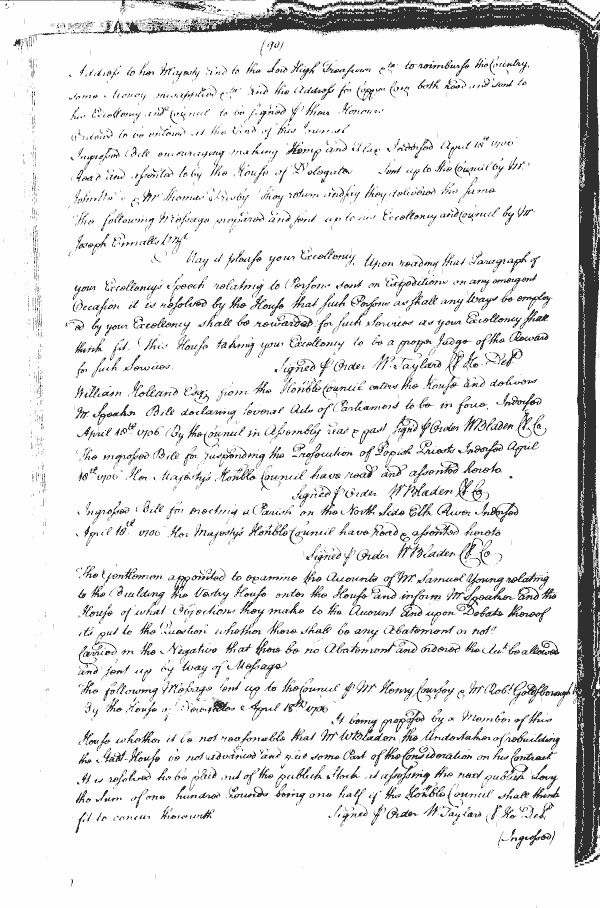 (90)
Address to her Majesty and to the Lord High Treasurer &ca to reimburse the Country,
some Money misapplied &ca and the Address for Copper Coyn both read and sent to
his Excellency and Council to be signed p their Honours
Ordered to be entered at the End of this Journal
Ingrossed Bill encouraging making Hemp and Flax Indorsed April 18th 1706
Read and assented to by the House of Delegates Sent up to the Council by Mr
John & Mr Thomas they return and say they delivered the same
The following Message prepared and sent up to his Excellency and Council by Mr
Joseph Ennalls
May it please your Excellency, Upon reading that Paragraph of
your Excellency's Speech relating to Persons sent on Expeditions on any emergent
Occasion it is resolved by the House that such Persons as shall any Ways be employ
'd by your Excellency shall be rewarded for such Services as your Excellency shall
think fit. This House taking your Excellency to be a proper Judge of the Reward
for such Services. Signed p Order W Taylard Cl. Ho. Del
William Holland Esqr from the Honble Council enters the House and delivers
Mr Speaker Bill declaring several Acts of Parliament to be in force Indorsed
April 18th 1706 By the Council in Assembly read & past Signd p Order W Bladen Cl Co
The ingrossed Bill for suspending the Prosecution of Popish Priests Indorsed April
18th 1706 Her Majesty's Honble Council have read and assented hereto.
Signed p Order W Bladen Cl Co,
Ingrossed Bill for erecting a Parish on the North Side Elk River Indorsed
April 18th 1706 Her Majesty's Honble Council have Read & assented hereto
Signed p Order W Bladen Cl Co
The Gentlemen appointed to examine the Accounts of Mr Samuel Young relating
to the Building the Vestry House enter the House and inform Mr Speaker and the
House of what Objections they make to the Account and upon Debate thereof
it's put to the Question whether there shall be any Abatement or not?
Carried in the Negative that there be no Abatement and ordered the Act be allowed
and sent up by Way of Message
The following Message sent up to the Council p Mr Henry Coursey & Mr Robt Goldsborough
By the House of Delegates April 18th 1706
It being proposed by a Member of this
House whether it be not reasonable that Mr W Bladen the Undertaker of rebuilding
the Stadt House be not advanced and paid some Part of the Consideration on his Contract
It is resolved he be paid out of the publick Stock at assessing the next publick Levy
the Sum of one hundred Pounds being one half if the Honble Council shall think
fit to concur therewith Signed p Order W Taylard Cl Ho Del.
(Ingrossed)